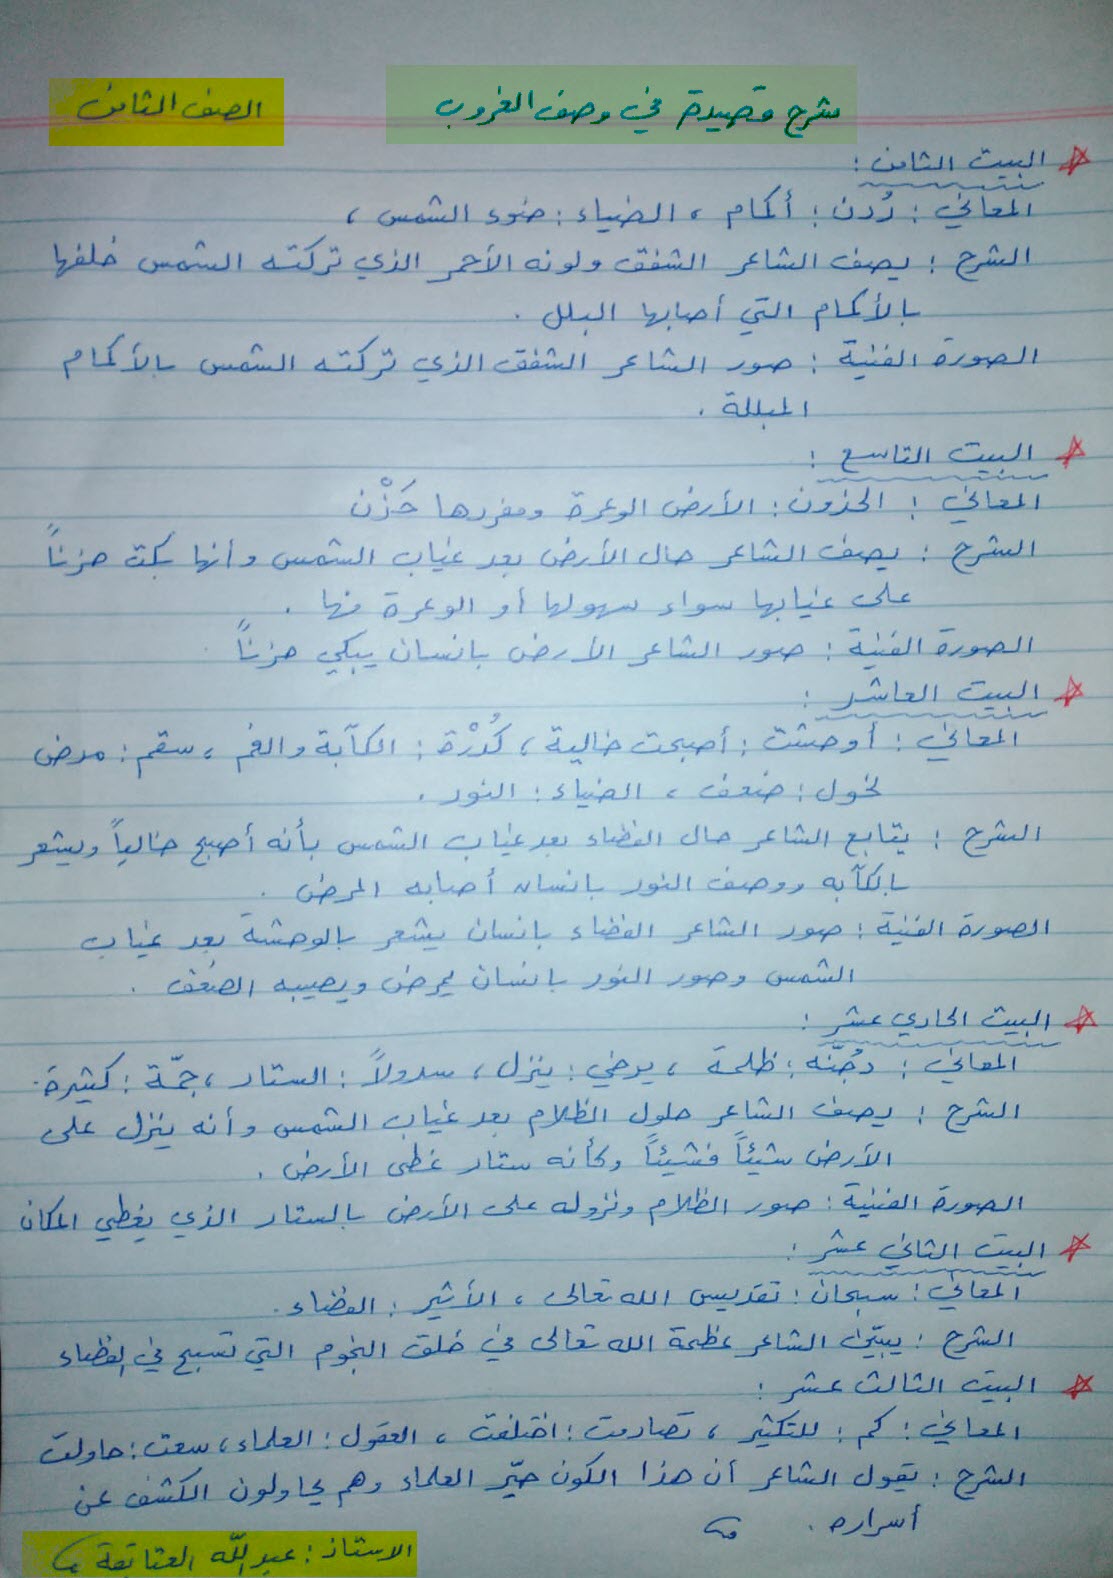 شرح قصيدة في وصف الغروب
الصف الثامن
البيت الثامن :
المعاني : رُدن : أكمام ، الضياء : ضوء الشمس ،
الشرح : يصف الشاعر الشفق ولونه الأحمر الذي تركته الشمس خلفها
بالأكمام التي أصابها البلل .
الصورة الفنية : صور الشاعر الشفق الذي تركته الشمس بالأكمام
المبللة .
البيت التاسع :
المعاني : الحزون : الأرض الوعرة ومفردها حَزْن
الشرح : يصف الشاعر حال الأرض بعد غياب الشمس وأنها بكت حزناً
على غيابها سواء سهولها أو الوعرة منها .
الصورة الفنية : صور الشاعر الأرض بانسان يبكي حزناً .
البيت العاشر :
المعاني : أوحشت : أصبحت خالية ، كُدْرة : الكآبة والغم ، سقم : مرض
نحول : ضعف ، الضياء : النور .
الشرح : يتابع الشاعر حال الفضاء بعد غياب الشمس بأنه أصبح خالياً ويشعر
بالكآبه ووصف النور بانسان أصابه المرض .
الصورة الفنية : صور الشاعر الفضاء بانسان يشعر بالوحشة بعد غياب
الشمس وصور النور بانسان يمرض ويصيبه الضعف .
البيت الحادي عشر :
المعاني : دُجنّه : ظلمة ، يرخي : ينزل ، سدولاً : الستار ، جمّة : كثيرة .
الشرح : يصف الشاعر حلول الظلام بعد غياب الشمس وأنه ينزل على
الأرض شيئاً فشيئاً وكأنه ستار غطى الأرض .
الصورة الفنية : صور الظلام ونزوله على الأرض بالستار الذي يغطي المكان
البيت الثاني عشر :
المعاني : سبحان : تقديس الله تعالى ، الأثير : الفضاء .
الشرح : يبيّن الشاعر عظمة الله تعالى في خلق النجوم التي تسبح في الفضاء
البيت الثالث عشر :
المعاني : كم : للتكثير ، تصادمت : اختلفت ، العقول : العلماء ، سعت : حاولت
الشرح : يقول الشاعر أن هذا الكون حيّر العلماء وهم يحاولون الكشف عن
أسراره .
الاستاذ : عبدالله العتابقة